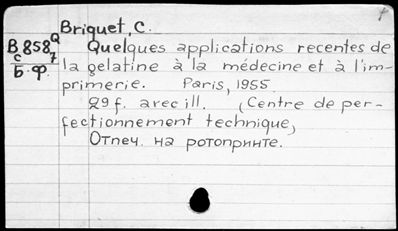 Briquet, C.
B858 Q Quelques applications recentes de
c 7 la gelatine à la médecine et à l'im-
Б.ф. primerie. Paris, 1955
29 f. avec ill. (Centre de per-
fectionnement technique,
Отпеч. на ротопринте.